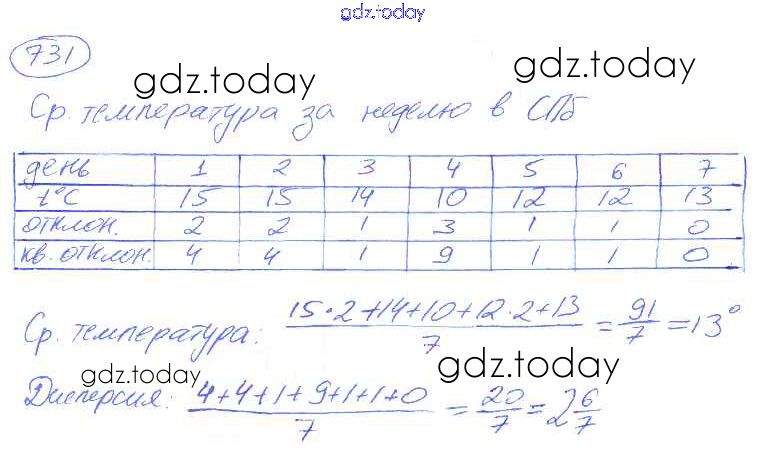 gdz.today
731
gdz.today gdz.today
Ср. температура за неделю в СПб
день 1 2 3 4 5 6 7
t°C 15 15 14 10 12 12 13
отклон. 2 2 1 3 1 1 0
кв. отклон. 4 4 1 9 1 1 0
Ср. температура: (15·2+14+10+12·2+13)/7 = 91/7 = 13°
gdz.today gdz.today
Дисперсия: (4+4+1+9+1+1+0)/7 = 20/7 = 2 6/7